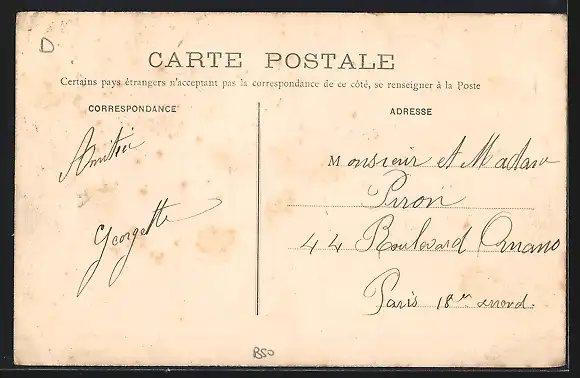 D
CARTE POSTALE
Certains pays étrangers n'acceptant pas la correspondance de ce côté, se renseigner à la Poste
CORRESPONDANCE
ADRESSE
Amitié
Georgette
Monsieur et Madame
Piron
44 Boulevard Ornano
Paris 18e nord.
BSO